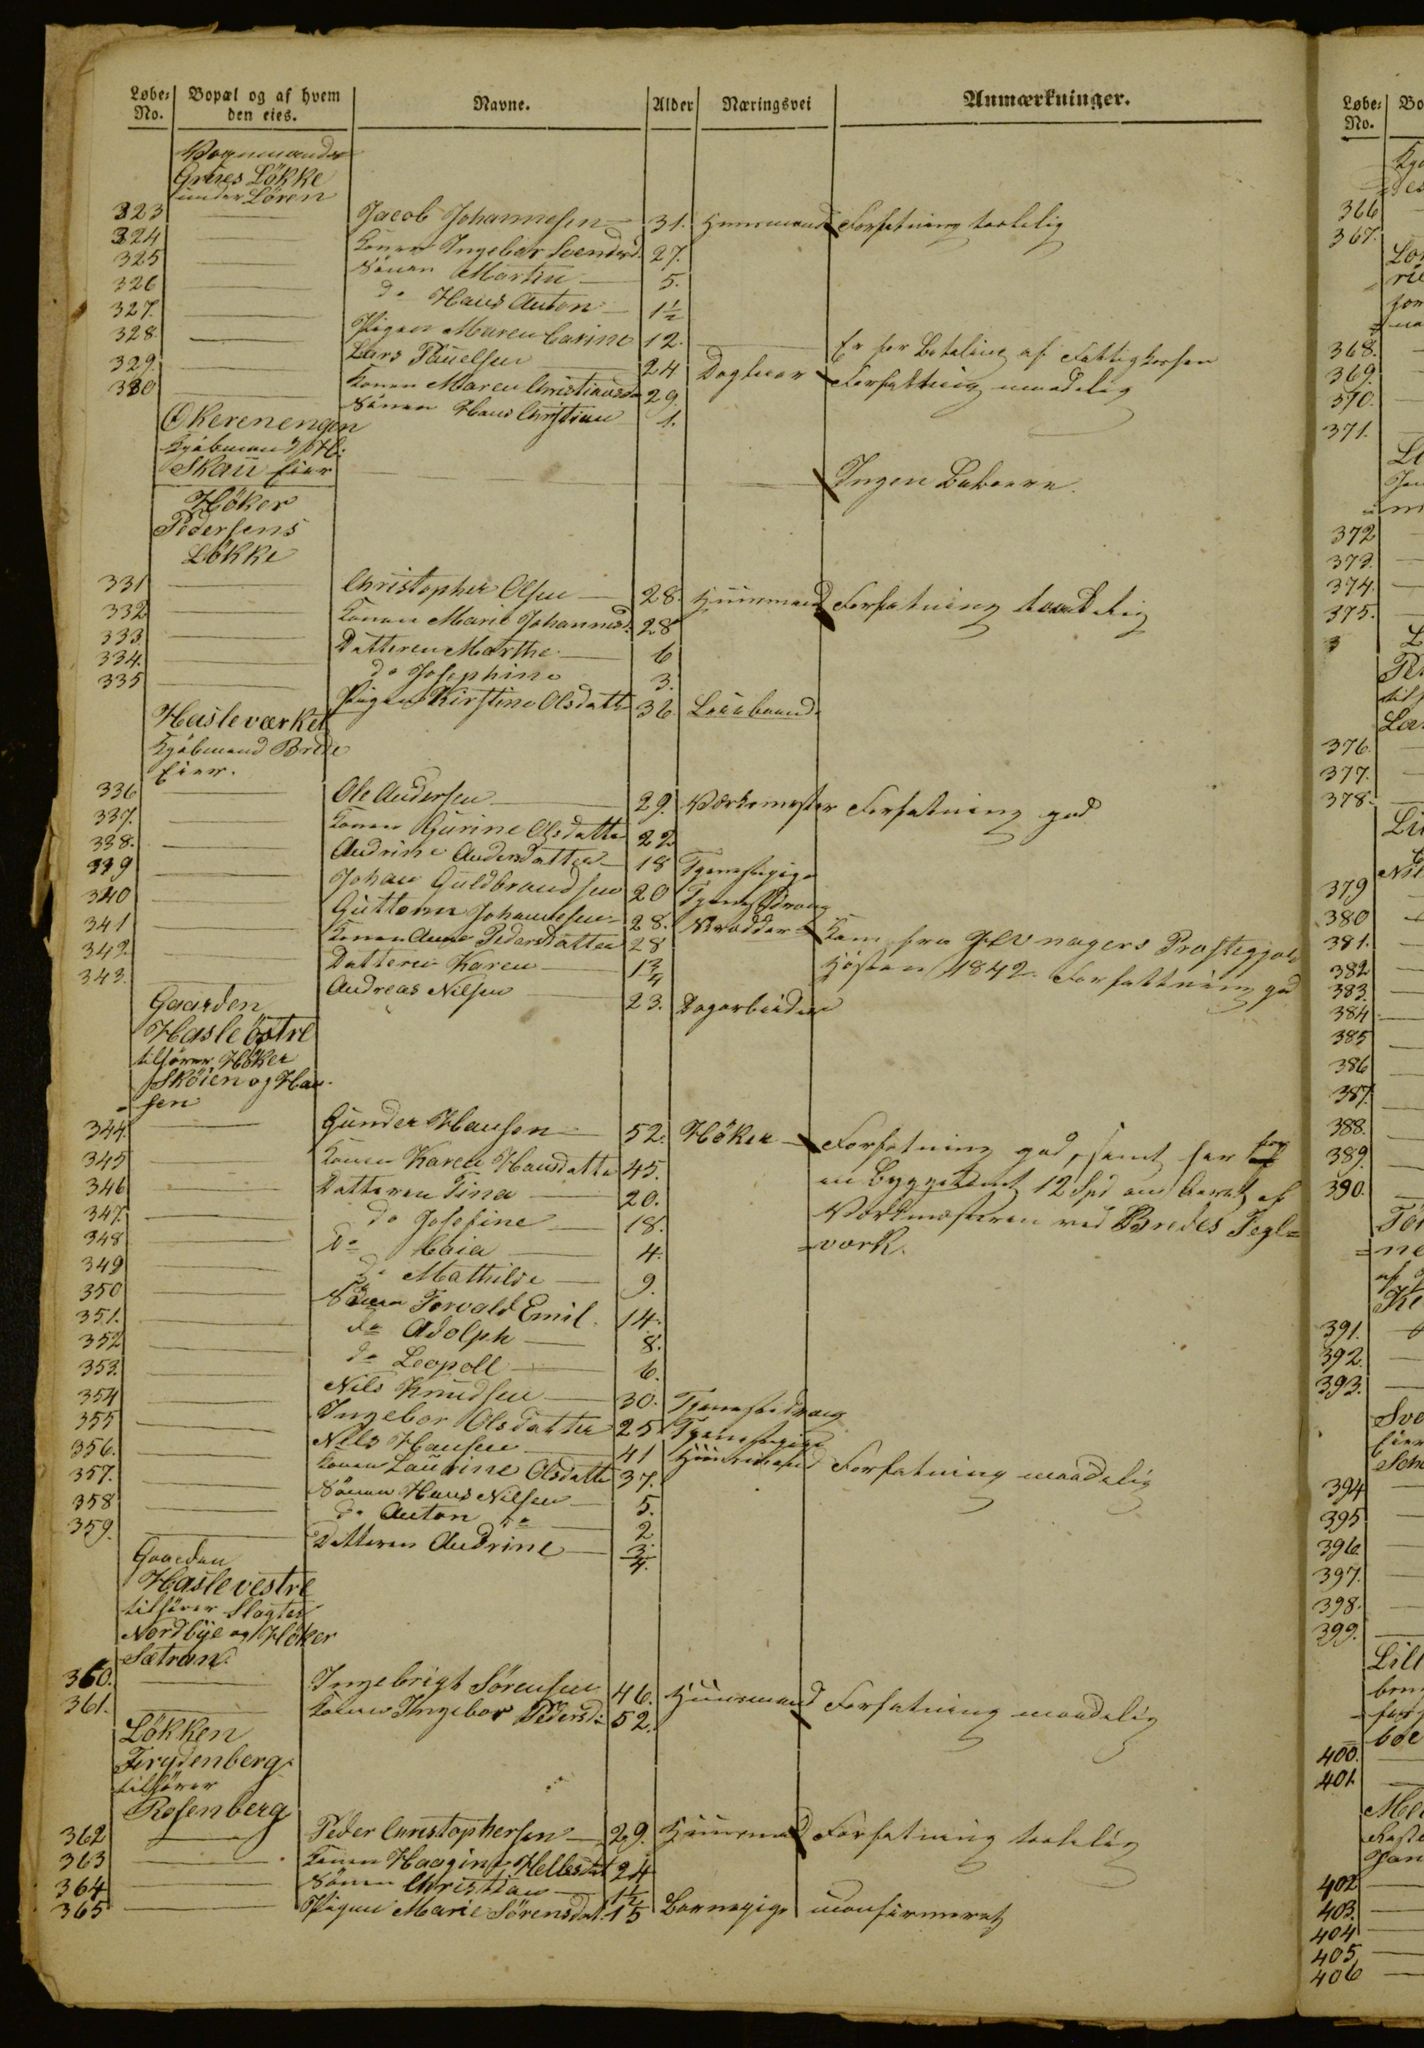 Løbe- No. Bopæl og af hvem den eies. Navne. Alder Næringsvei Anmærkninger.
Vognmand
Grües Løkke
under Løren
323 Jacob Johannesen 31. Huusmand Forfatning taalelig
324 Konen Ingebor Svendsd. 27.
325 Sönen Martin 5.
326 do Hans Anton 1½
327. Pigen Maren Carine 12. Er for Betaling af Fattigkassen
328. Lars Pauelsen 24 Dagleier Forfatning maadelig
329. Konen Maren Christiansda 29
330 Sönen Hans Christian 1.
Økerenengen
Kjøbmand H:
Skau Eier Ingen Beboere.
Høker
Pedersens
Løkke
331 Christopher Olsen 28. Huusmand Forfatning taadelig
332 Konen Marie Johannesd. 28
333 Datteren Marthe 6
334. do Josephine 3.
335 Pigen Kirstine Olsdatt 36
Hasleværket
Kjøbmand Brede
Eier.
336 Ole Andersen 29. Værkemester Forfatning god
337. Konen Gurine Olsdatte 22
338. Andrine Andersdatter 18 Tjenestepige
339 Johan Guldbrandsen 20 Tjenestdreng
340 Guttorm Johannesen 28. Skrædder Kom fra Præstegjeld
341 Konen Anne Pedersdatter 28 Høsten 1842. Forfattning god
342. Datteren Karen 1¾
343. Andreas Nilsen 23. Dagarbeider
Gaarden
Hasle östre
tilhører Høker
Skøien og Han-
sen
344. Gunder Hansen 52. Høker Forfatning god, samt har for
345 Konen Karen Hansdatte 45. en Byggetomt 12 Spd om Aaret af
346 Datteren Tina 20. Værkmesteren ved Bredes Tegl=
347. do Josefine 18. =værk.
348 do Caia 4.
349 do Mathilde 9.
350 Sönen Torvald Emil. 14.
351. do Adolph 8.
352 do Leopoll 6.
353. Nils Knudsen 30. Tjenestedreng
354 Ingebor Olsdatter 25 Tjenestepige
355 Nils Hansen 41 Huusmand Forfatning maadelig
356. Konen Laurine Olsdatte 37.
357. Sönen Hans Nilsen 5.
358 do Anton do 2
359. Datteren Andrine ¾.
Gaarden
Hasle vestre
tilhører Slagter
Nordbye og Høker
Sætran.
360. Ingebrigt Sörensen 46. Huusmand Forfatning maadelig
361. Konen Ingebor Pedersd: 52.
Løkken
Frydenberg
tilhører
Rosenberg
362 Peder Christophersen 29. Huusmand Forfatning taalelig
363 Konen Haagine Hellesdat 24
364 Sönen Christian 1½
365 Pigen Marie Sörensdat. 15 Barnepige uconfirmeret
Løbe- No. Bo
366
367.
368.
369.
370.
371.
372
373.
374.
375.
376.
377.
378.
379
380
381.
382
383.
384
385
386
387.
388
389.
390.
391.
392.
393.
394
395
396
397.
398.
399.
Lill
400.
401.
402
403.
404
405
406